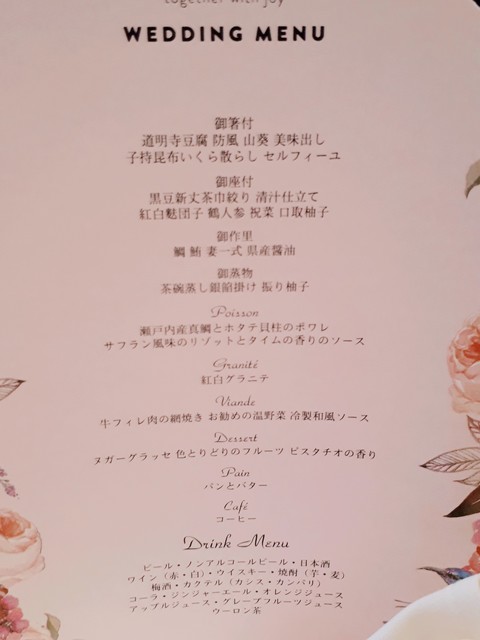 together with joy
WEDDING MENU
御箸付
道明寺豆腐 防風 山葵 美味出し
子持昆布いくら散らし セルフィーユ
御座付
黒豆新丈茶巾絞り 清汁仕立て
紅白麩団子 鶴人参 祝菜 口取柚子
御作里
鯛 鮪 妻一式 県産醤油
御蒸物
茶碗蒸し銀餡掛け 振り柚子
Poisson
瀬戸内産真鯛とホタテ貝柱のポワレ
サフラン風味のリゾットとタイムの香りのソース
Granité
紅白グラニテ
Viande
牛フィレ肉の網焼き お勧めの温野菜 冷製和風ソース
Dessert
ヌガーグラッセ 色とりどりのフルーツ ピスタチオの香り
Pain
パンとバター
Café
コーヒー
Drink Menu
ビール・ノンアルコールビール・日本酒
ワイン（赤・白）・ウイスキー・焼酎（芋・麦）
梅酒・カクテル（カシス・カンパリ）
コーラ・ジンジャーエール・オレンジジュース
アップルジュース・グレープフルーツジュース
ウーロン茶